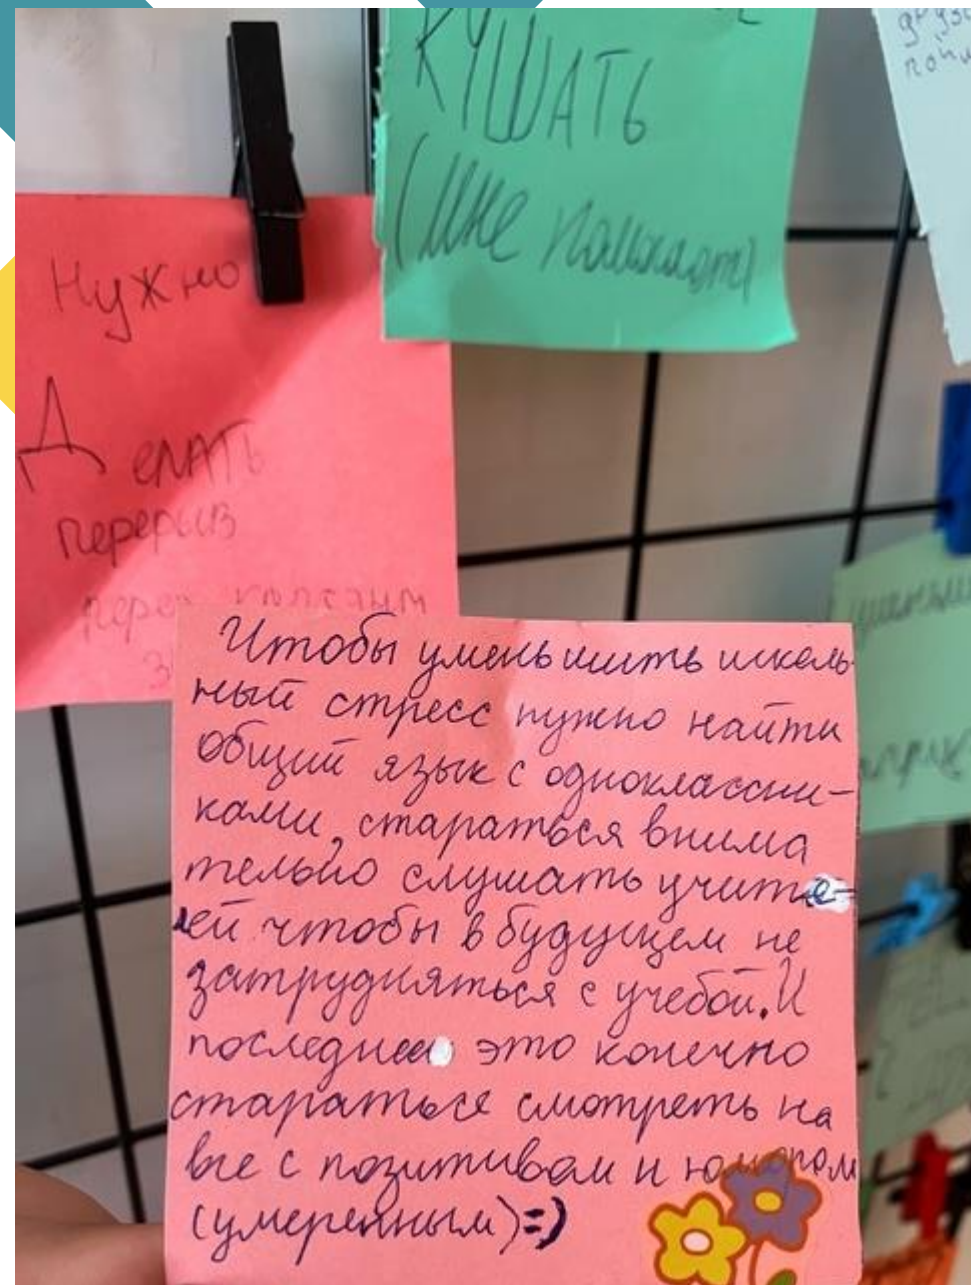 КУШАТЬ
(мне помогает)
Нужно
Делать
перерыв
перед каждым
Чтобы уменьшить школь-
ный стресс нужно найти
общий язык с одноклассни-
ками, стараться внима
тельно слушать учите-
лей чтобы в будущем не
затрудняться с учебой. И
последнее это конечно
стараться смотреть на
все с позитивом и юмором
(умеренным) =)